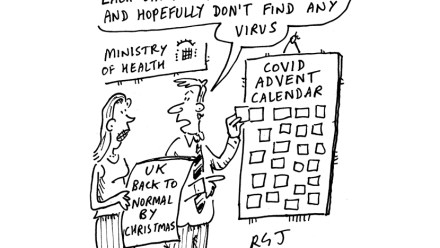 AND HOPEFULLY DON'T FIND ANY
VIRUS
MINISTRY
OF HEALTH
COVID
ADVENT
CALENDAR
UK
BACK TO
NORMAL
BY
CHRISTMAS
RGJ